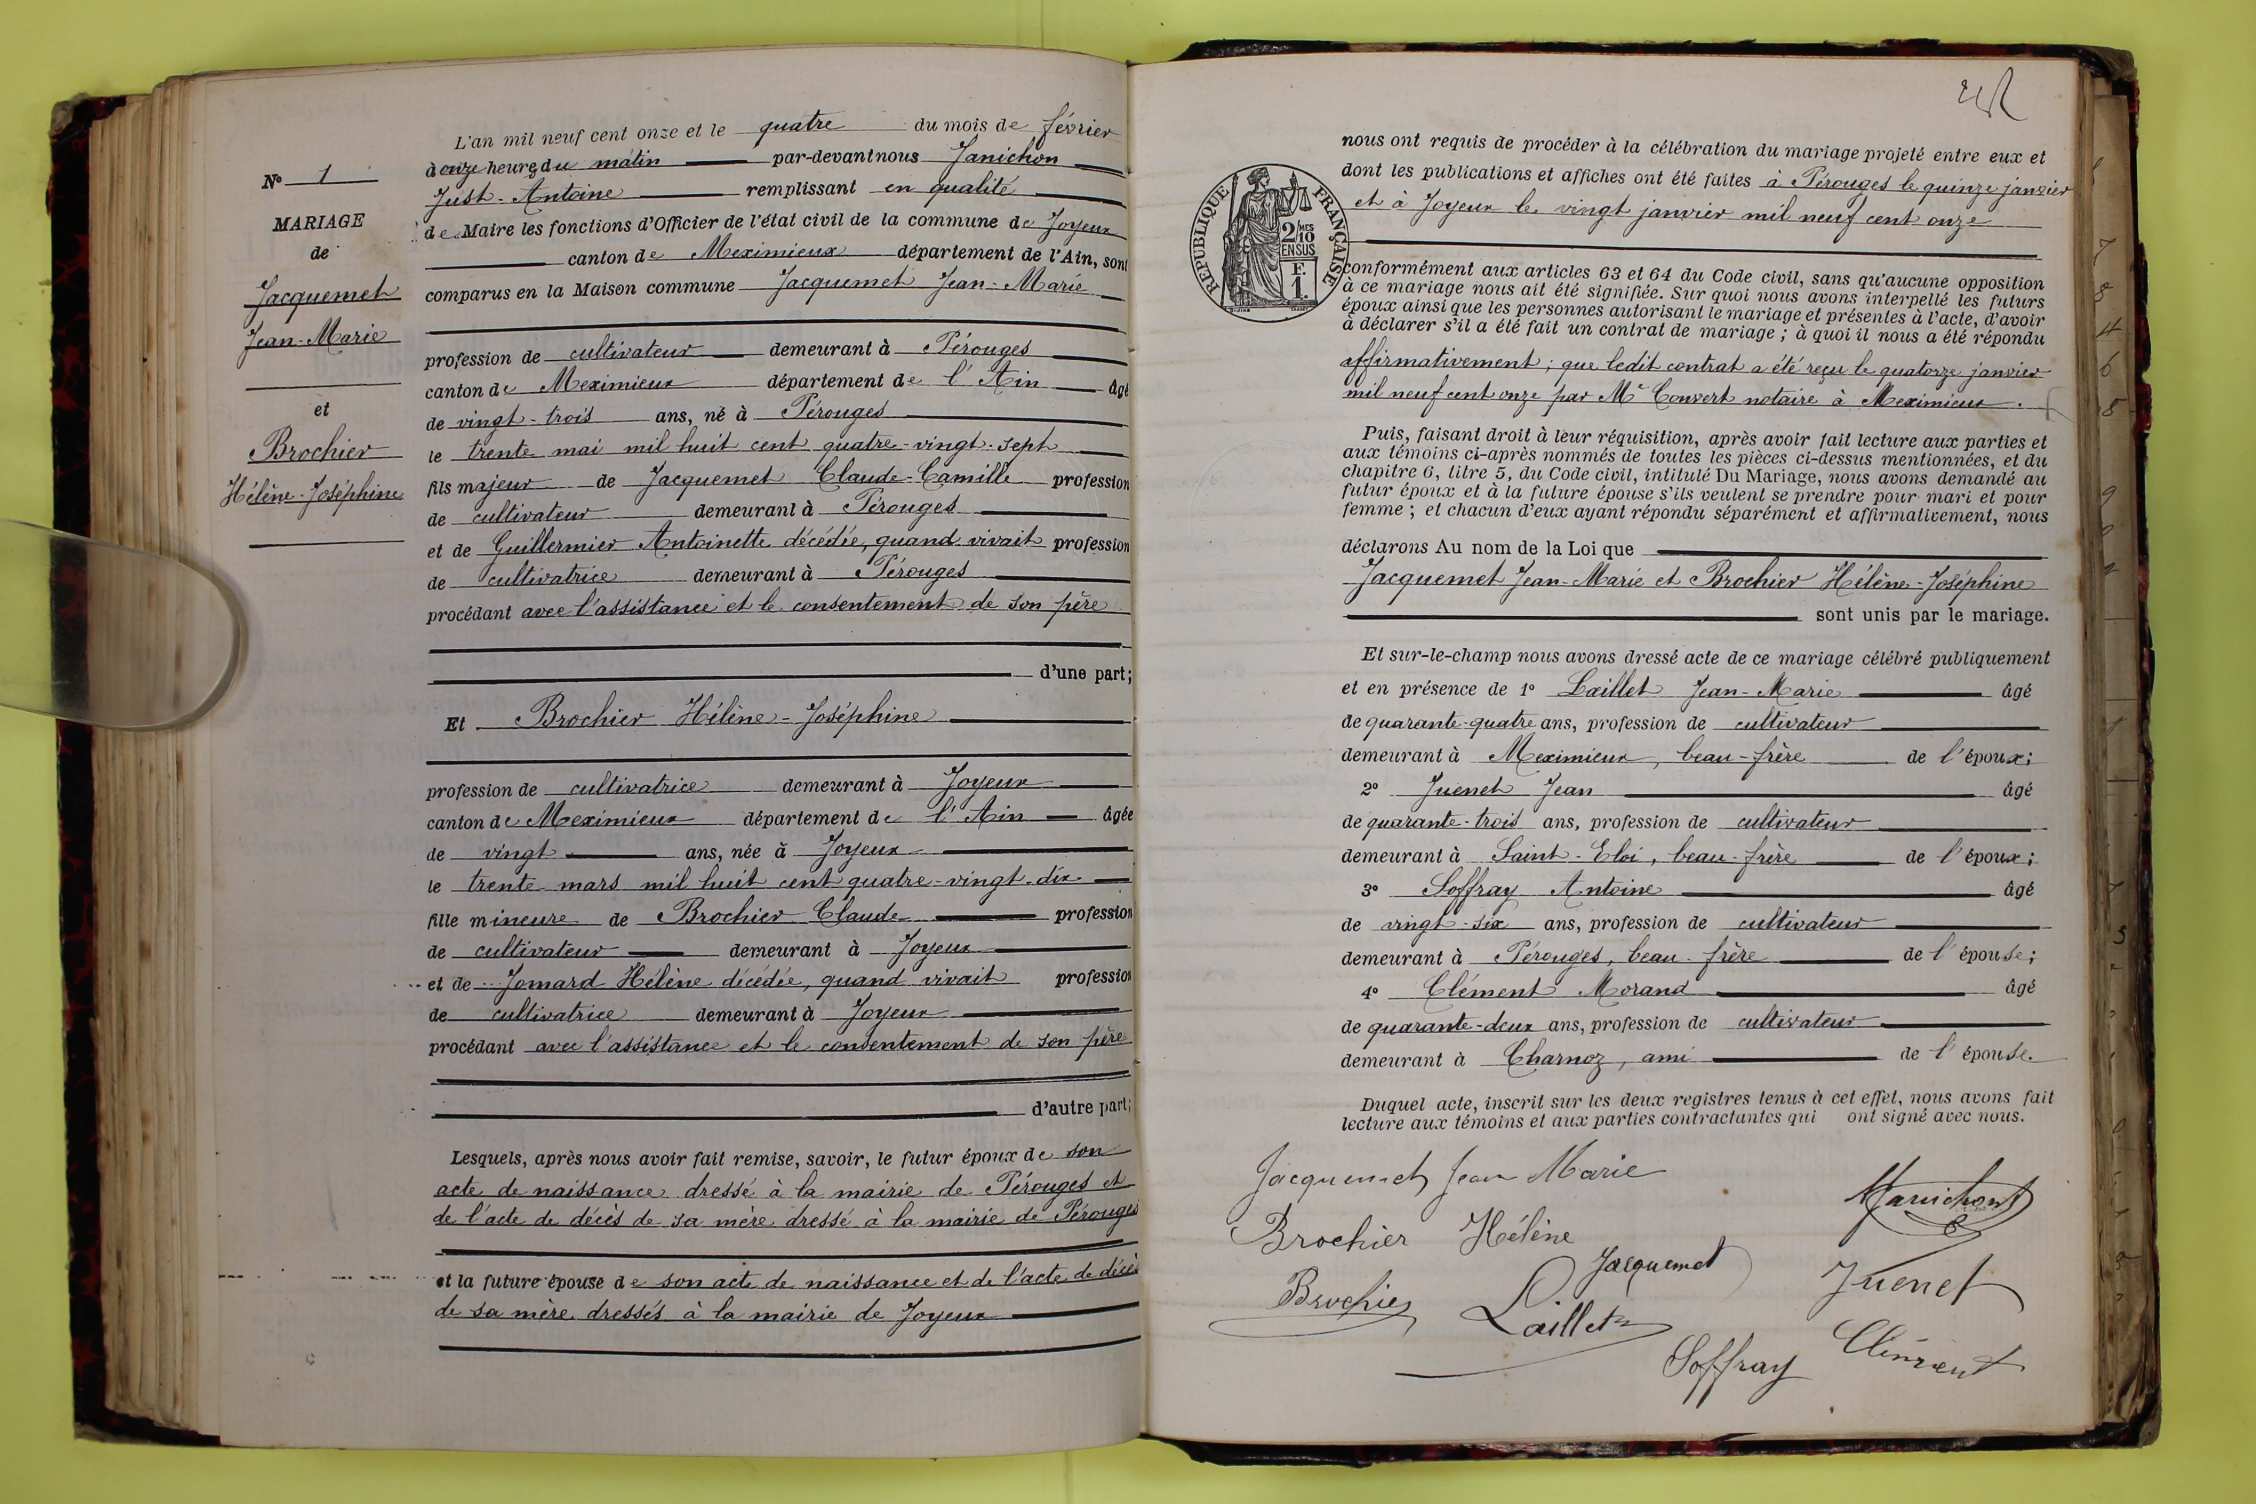 N° 1
MARIAGE
de
Jacquemet
Jean-Marie
et
Brochier
Hélène-Joséphine
L'an mil neuf cent onze et le quatre du mois de février
à onze heures du matin par-devant nous Janichon
Just-Antoine remplissant en qualité
de Maire les fonctions d'Officier de l'état civil de la commune de Joyeux
canton de Meximieux département de l'Ain, sont
comparus en la Maison commune Jacquemet Jean-Marie
profession de cultivateur demeurant à Pérouges
canton de Meximieux département de l'Ain âgé
de vingt-trois ans, né à Pérouges
le trente mai mil huit cent quatre-vingt-sept
fils majeur de Jacquemet Claude-Camille profession
de cultivateur demeurant à Pérouges
et de Guillermier Antoinette décédée, quand vivait profession
de cultivatrice demeurant à Pérouges
procédant avec l'assistance et le consentement de son père
d'une part;
Et Brochier Hélène-Joséphine
profession de cultivatrice demeurant à Joyeux
canton de Meximieux département de l'Ain âgée
de vingt ans, née à Joyeux
le trente mars mil huit cent quatre-vingt-dix
fille mineure de Brochier Claude profession
de cultivateur demeurant à Joyeux
et de Jomard Hélène décédée, quand vivait profession
de cultivatrice demeurant à Joyeux
procédant avec l'assistance et le consentement de son père
d'autre part;
Lesquels, après nous avoir fait remise, savoir, le futur époux de son
acte de naissance dressé à la mairie de Pérouges et
de l'acte de décès de sa mère dressé à la mairie de Pérouges
et la future épouse de son acte de naissance et de l'acte de décès
de sa mère dressés à la mairie de Joyeux
RÉPUBLIQUE FRANÇAISE
2/10 MES
EN SUS
F.
1.
nous ont requis de procéder à la célébration du mariage projeté entre eux et
dont les publications et affiches ont été faites à Pérouges le quinze janvier
et à Joyeux le vingt janvier mil neuf cent onze
conformément aux articles 63 et 64 du Code civil, sans qu'aucune opposition
à ce mariage nous ait été signifiée. Sur quoi nous avons interpellé les futurs
époux ainsi que les personnes autorisant le mariage et présentes à l'acte, d'avoir
à déclarer s'il a été fait un contrat de mariage ; à quoi il nous a été répondu
affirmativement ; que ledit contrat a été reçu le quatorze janvier
mil neuf cent onze par Me Convert notaire à Meximieux.
Puis, faisant droit à leur réquisition, après avoir fait lecture aux parties et
aux témoins ci-après nommés de toutes les pièces ci-dessus mentionnées, et du
chapitre 6, titre 5, du Code civil, intitulé Du Mariage, nous avons demandé au
futur époux et à la future épouse s'ils veulent se prendre pour mari et pour
femme ; et chacun d'eux ayant répondu séparément et affirmativement, nous
déclarons Au nom de la Loi que
Jacquemet Jean-Marie et Brochier Hélène-Joséphine
sont unis par le mariage.
Et sur-le-champ nous avons dressé acte de ce mariage célébré publiquement
et en présence de 1° Laillet Jean-Marie âgé
de quarante-quatre ans, profession de cultivateur
demeurant à Meximieux, beau-frère de l'époux;
2° Juenet Jean âgé
de quarante-trois ans, profession de cultivateur
demeurant à Saint-Eloi, beau-frère de l'époux;
3° Soffray Antoine âgé
de vingt-six ans, profession de cultivateur
demeurant à Pérouges, beau-frère de l'épouse;
4° Clément Morand âgé
de quarante-deux ans, profession de cultivateur
demeurant à Charnoz, ami de l'épouse.
Duquel acte, inscrit sur les deux registres tenus à cet effet, nous avons fait
lecture aux témoins et aux parties contractantes qui ont signé avec nous.
Jacquemet Jean Marie
Brochier Hélène
Jacquemet
Juenet
Brochier
Laillet
Clément
Soffray